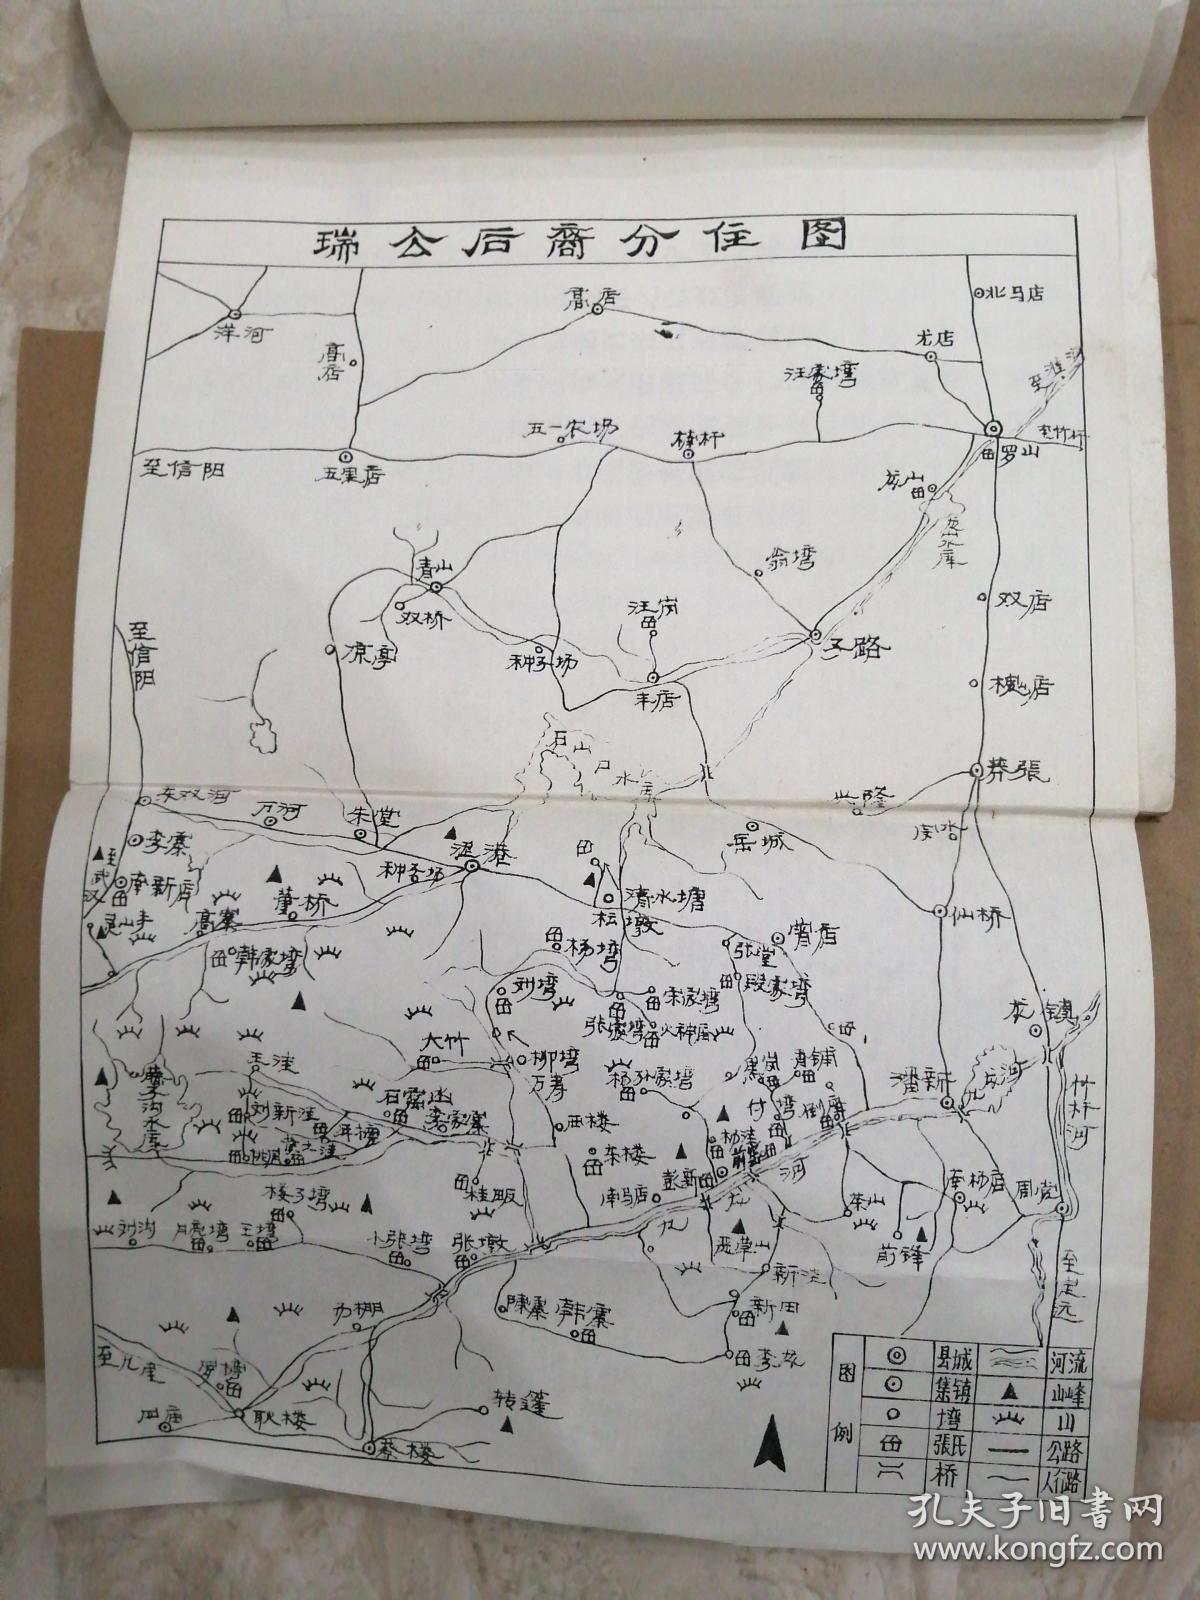 瑞公后裔分住图
洋河
高店
高店
尤店
汪家塆
至淮河
五一农场
楠杆
至竹杆
至信阳
五里店
罗山
龙山
青山
翁塆
双桥
汪岗
双店
至信阳
凉亭
种子场
子路
丰店
石山口水库
莽張
兴隆
东双河
万河
朱堂
岳城
李寨
种子场
涩港
至武汉
南新店
董桥
清水塘
仙桥
灵山寺
高寨
坛墩
韩家塆
杨塆
张堂
殷家塆
刘塆
宋家塆
张家塆
火神庙
龙镇
大竹
柳塆
杨孙家塆
黑岗
青铺
潘新
龙河
竹杆河
王洼
石窑凼
万寿
付塆
刘新洼
李家寨
西楼
东楼
杨洼
河
桂畈
彭新
南马店
九
茶山
南杨店
周党
楼子塆
刘沟
王塆
小张塆
张墩
前锋
灵草山
新洼
至定远
力棚
陳寨
韩寨
新田
至九里
罗塆
四庙
耿楼
转篷
蔡楼
图例
县城
河流
集镇
山峰
塆
山
張氏
公路
桥
人行路
孔夫子旧书网
www.kongfz.com